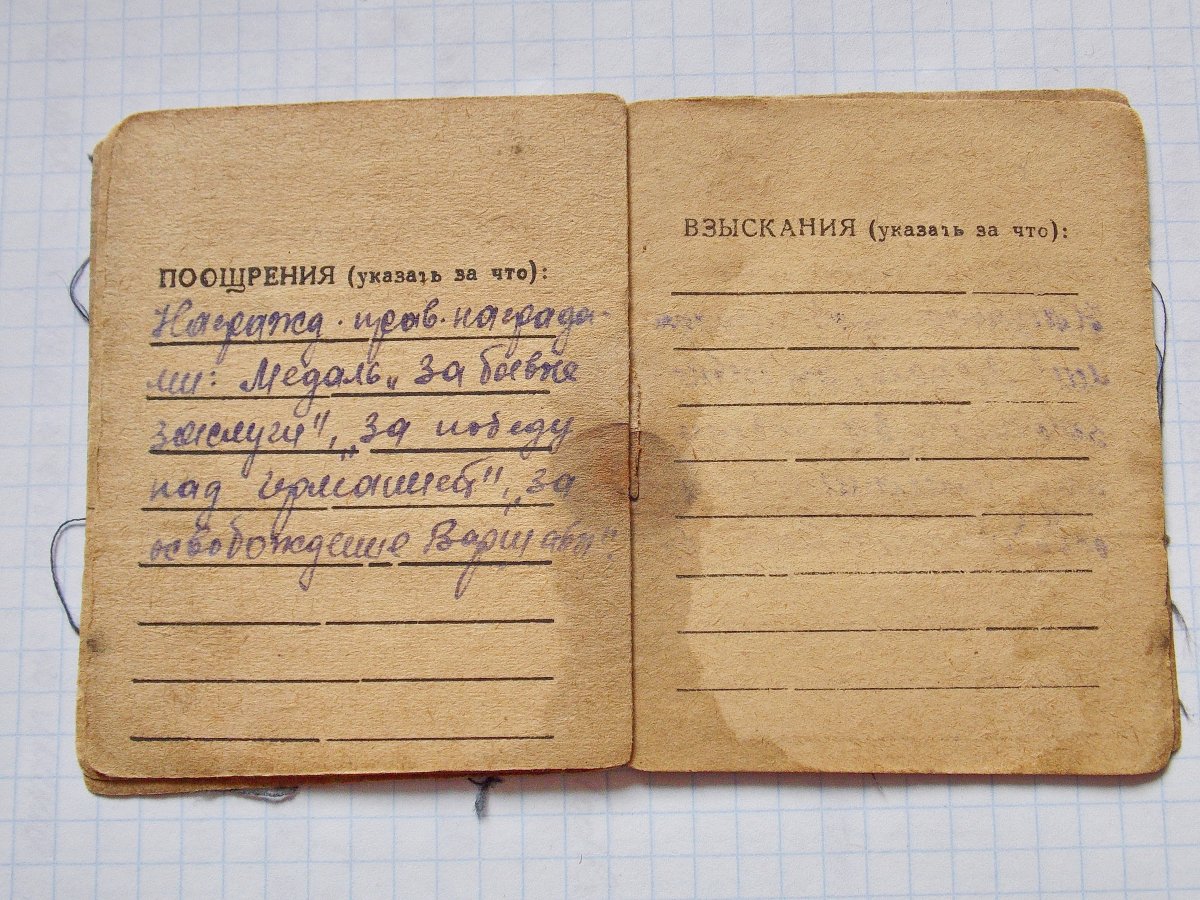 ПООЩРЕНИЯ (указать за что):
Награжд. прав. награда-
ми: Медаль „За боевые
заслуги", „За победу
над Германией", „За
освобождение Варшавы".
ВЗЫСКАНИЯ (указать за что):